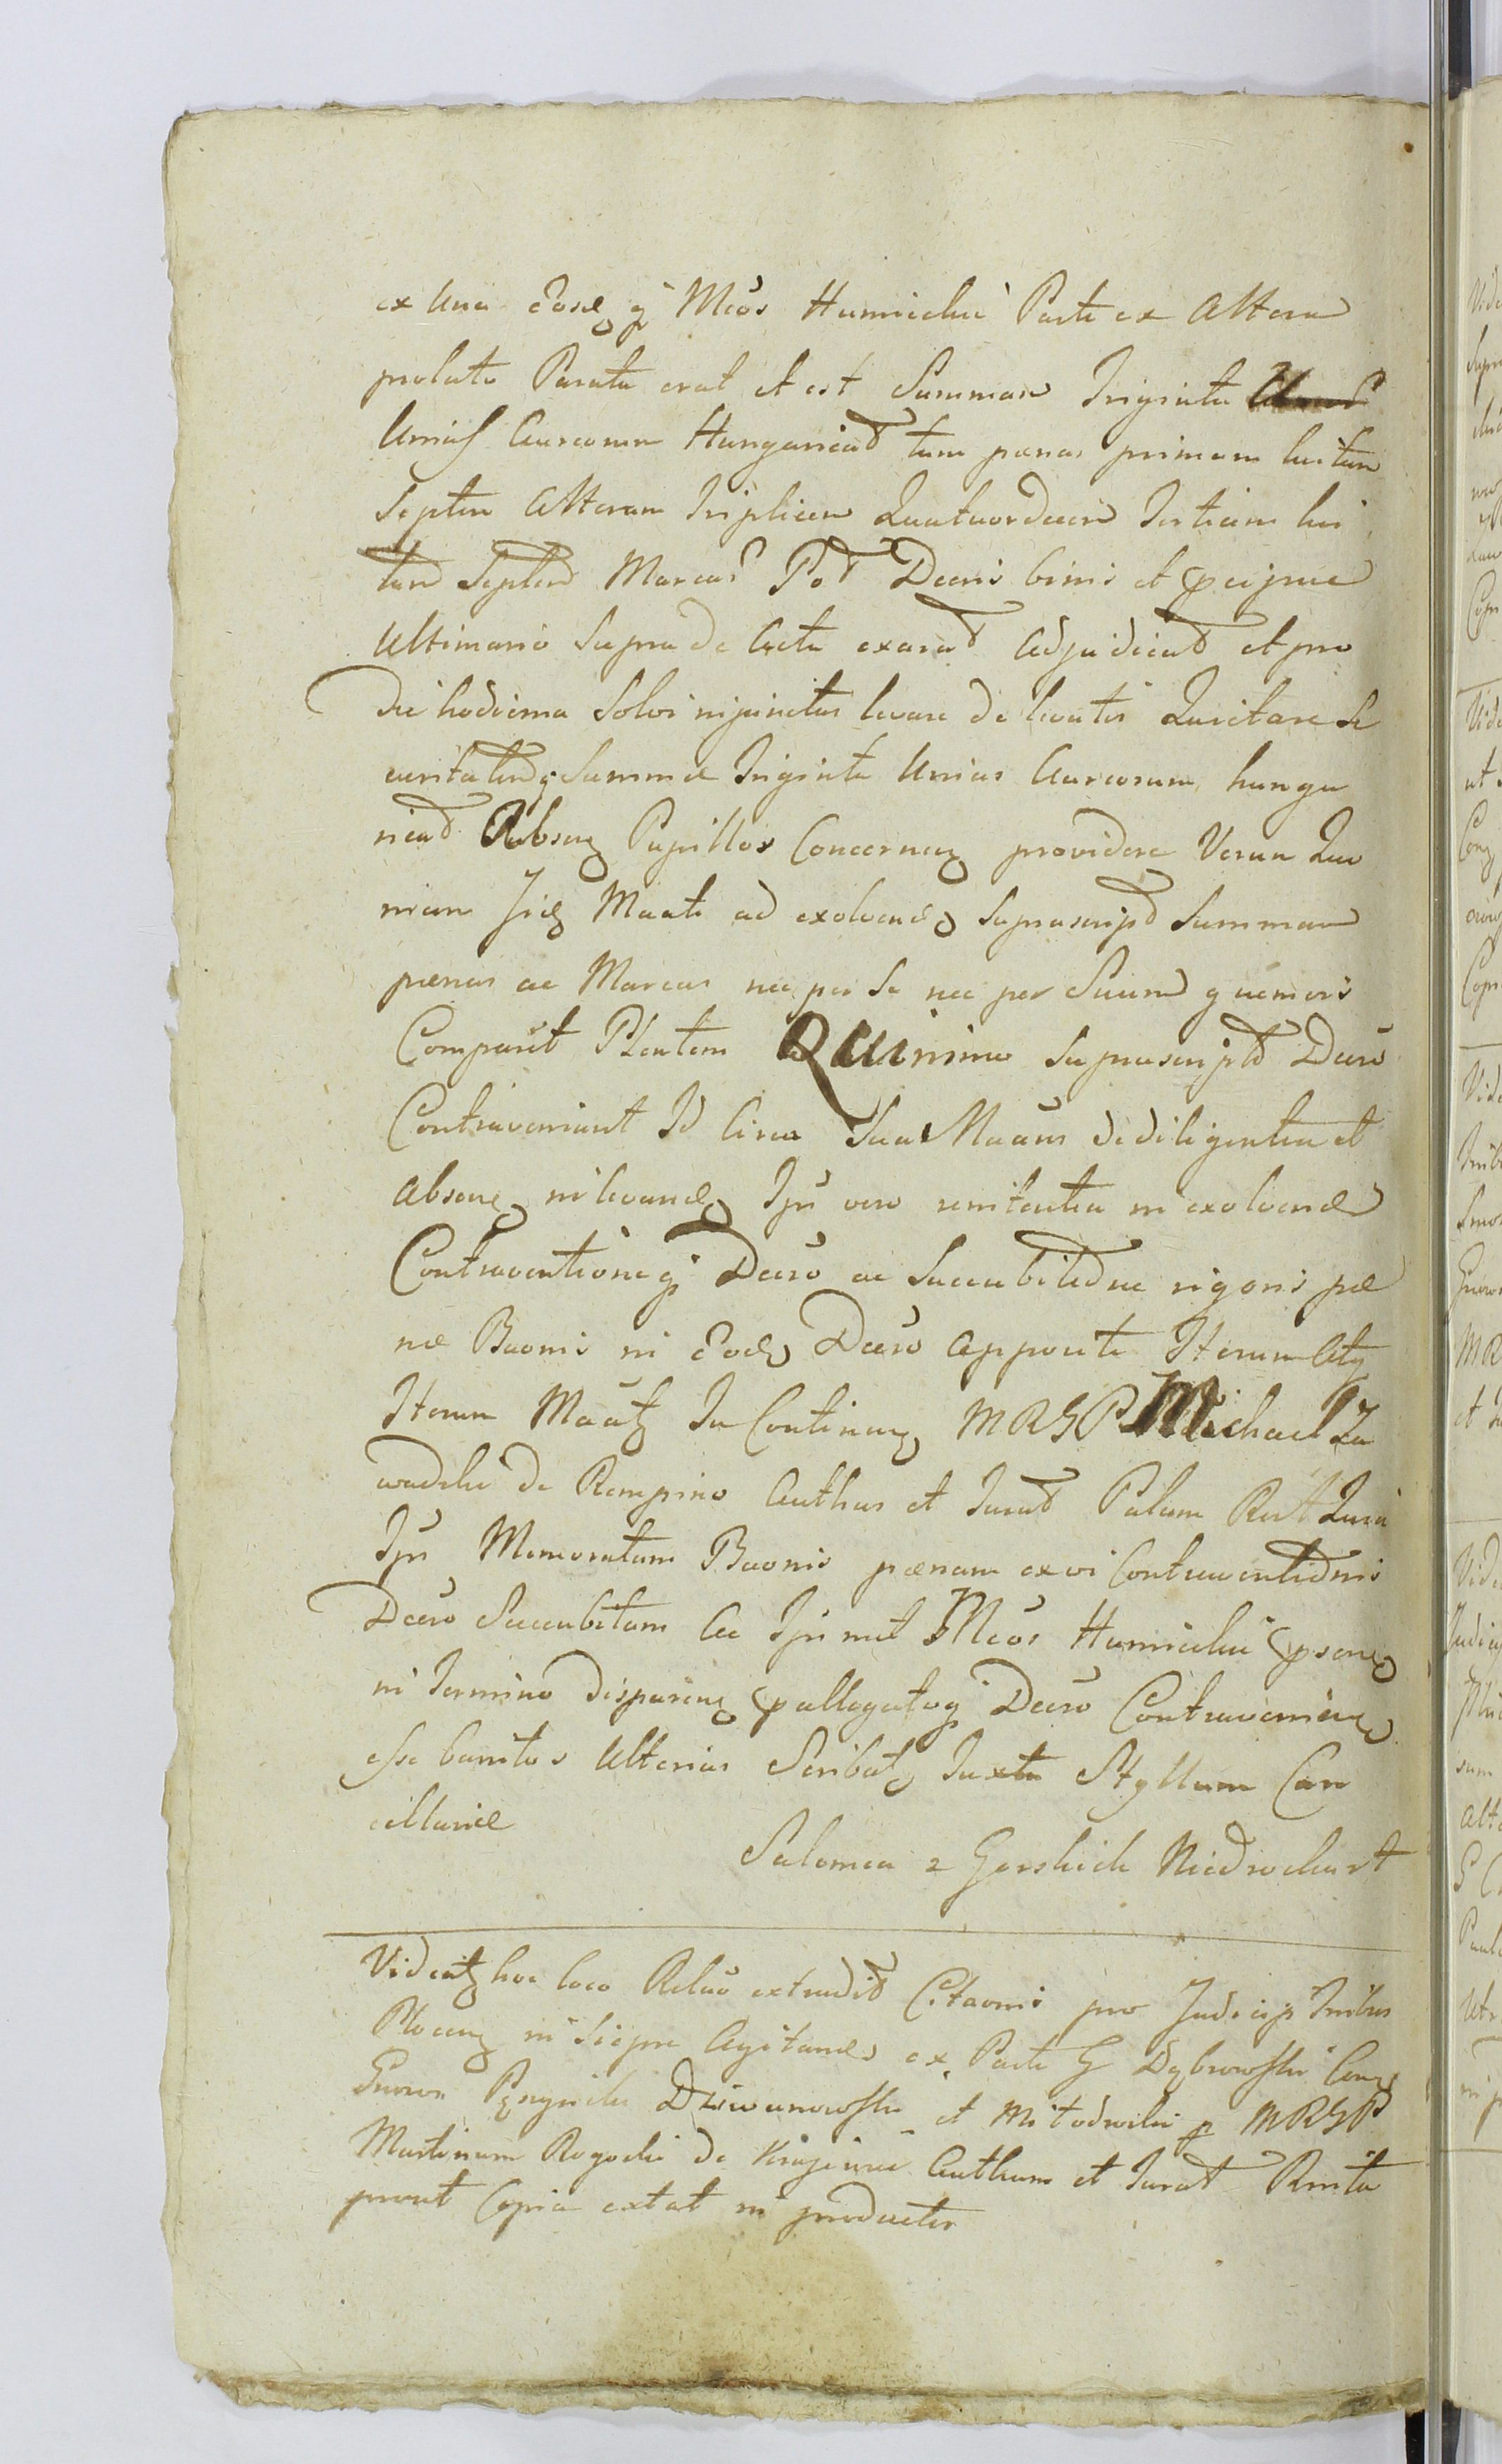 ex Una Eosq gʒ Mcos Humięcki Parte ex Altera
prolato Parata erat et est Summam Triginta
Unius Aureorum Hungarical tum pœnas primam luitam
Septem Alteram Triplicem Quatuordecim Tertiam lui
tam Septem Marcas Pol Decris binis et
Ultimario Supra de Actu exarat Adjudicat et pro
Die hodierna Solvi injunctas levare de levatis Quietare Se
curitatemq Summæ Triginta Unius Aureorum hunga
rical Absenʒ Pupillos Concernenʒ providere Verum Quo
niam Maate ad exolvend Suprascript Summam
pœnas ac Marcas nec per Se nec per Suum quemvis
Comparet Plentem Quinimo Suprascriptt Decro
Contraveniunt Id Circa Sua Maaus de diligentia et
absene in levand Ipsi vero renitentia in exolvend
Contraventioneqʒ Decro ac Succubitione rigoris pœ
næ Baonis in Eod Decro Apposite Iterum Atqʒ
Iterum Maatʒ In Continenʒ MRGP Michael Za
wadzki de Rempino Authus et Jurat Palam Rect Quia
Ipsi Memoratam Baonis pœnam ex vi Contraventionis
Decro Succubitam Ac Ipsimet Mcos Humięcki psone
in Termino disparenʒ pallegatoqʒ Decro Contravenienʒ
esse banitos Ulterius Scribatʒ Juxta Styllum Can
cellariæ
Salomea z Gorskich Niedrocharst
Videatʒ hoc loco Relao extradit Citaonis pro Judicijs Tribus
Plocenʒ in Siepre Agitand ex Parte G Dąbrowski Cong
Gnoron Dziwanowski et Mitodrwski p MRGP
Martinum Rogocki de Authum et Jurat Rnita
prout Copia extat in productis